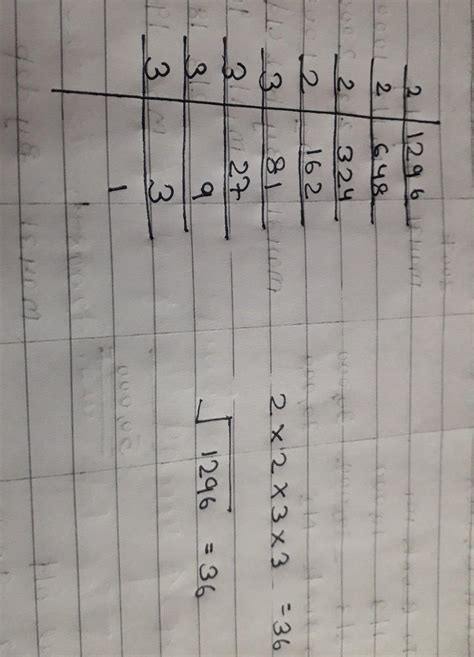 2 | 1296
2 | 648
2 | 324
2 | 162
3 | 81
3 | 27
3 | 9
3 | 3
1
2 × 2 × 3 × 3 = 36
√1296 = 36